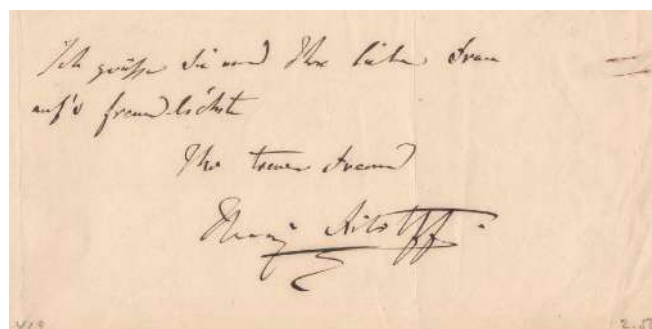 Ich grüße Sie und Ihre liebe Frau
auf's freundlichste
Ihr treuer Freund
Henry Litolff